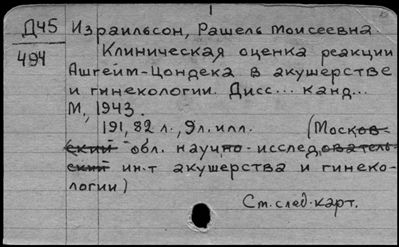 1
Д45 Израильсон, Рашель Моисеевна
494 Клиническая оценка реакции
Ашгейм-Цондека в акушерстве
и гинекологии. Дисс... канд...
М., 1943.
191, 82 л., 9 л. илл. (Москов-
ский обл. научно-исследователь-
ский ин-т акушерства и гинеко-
логии)
См. след. карт.